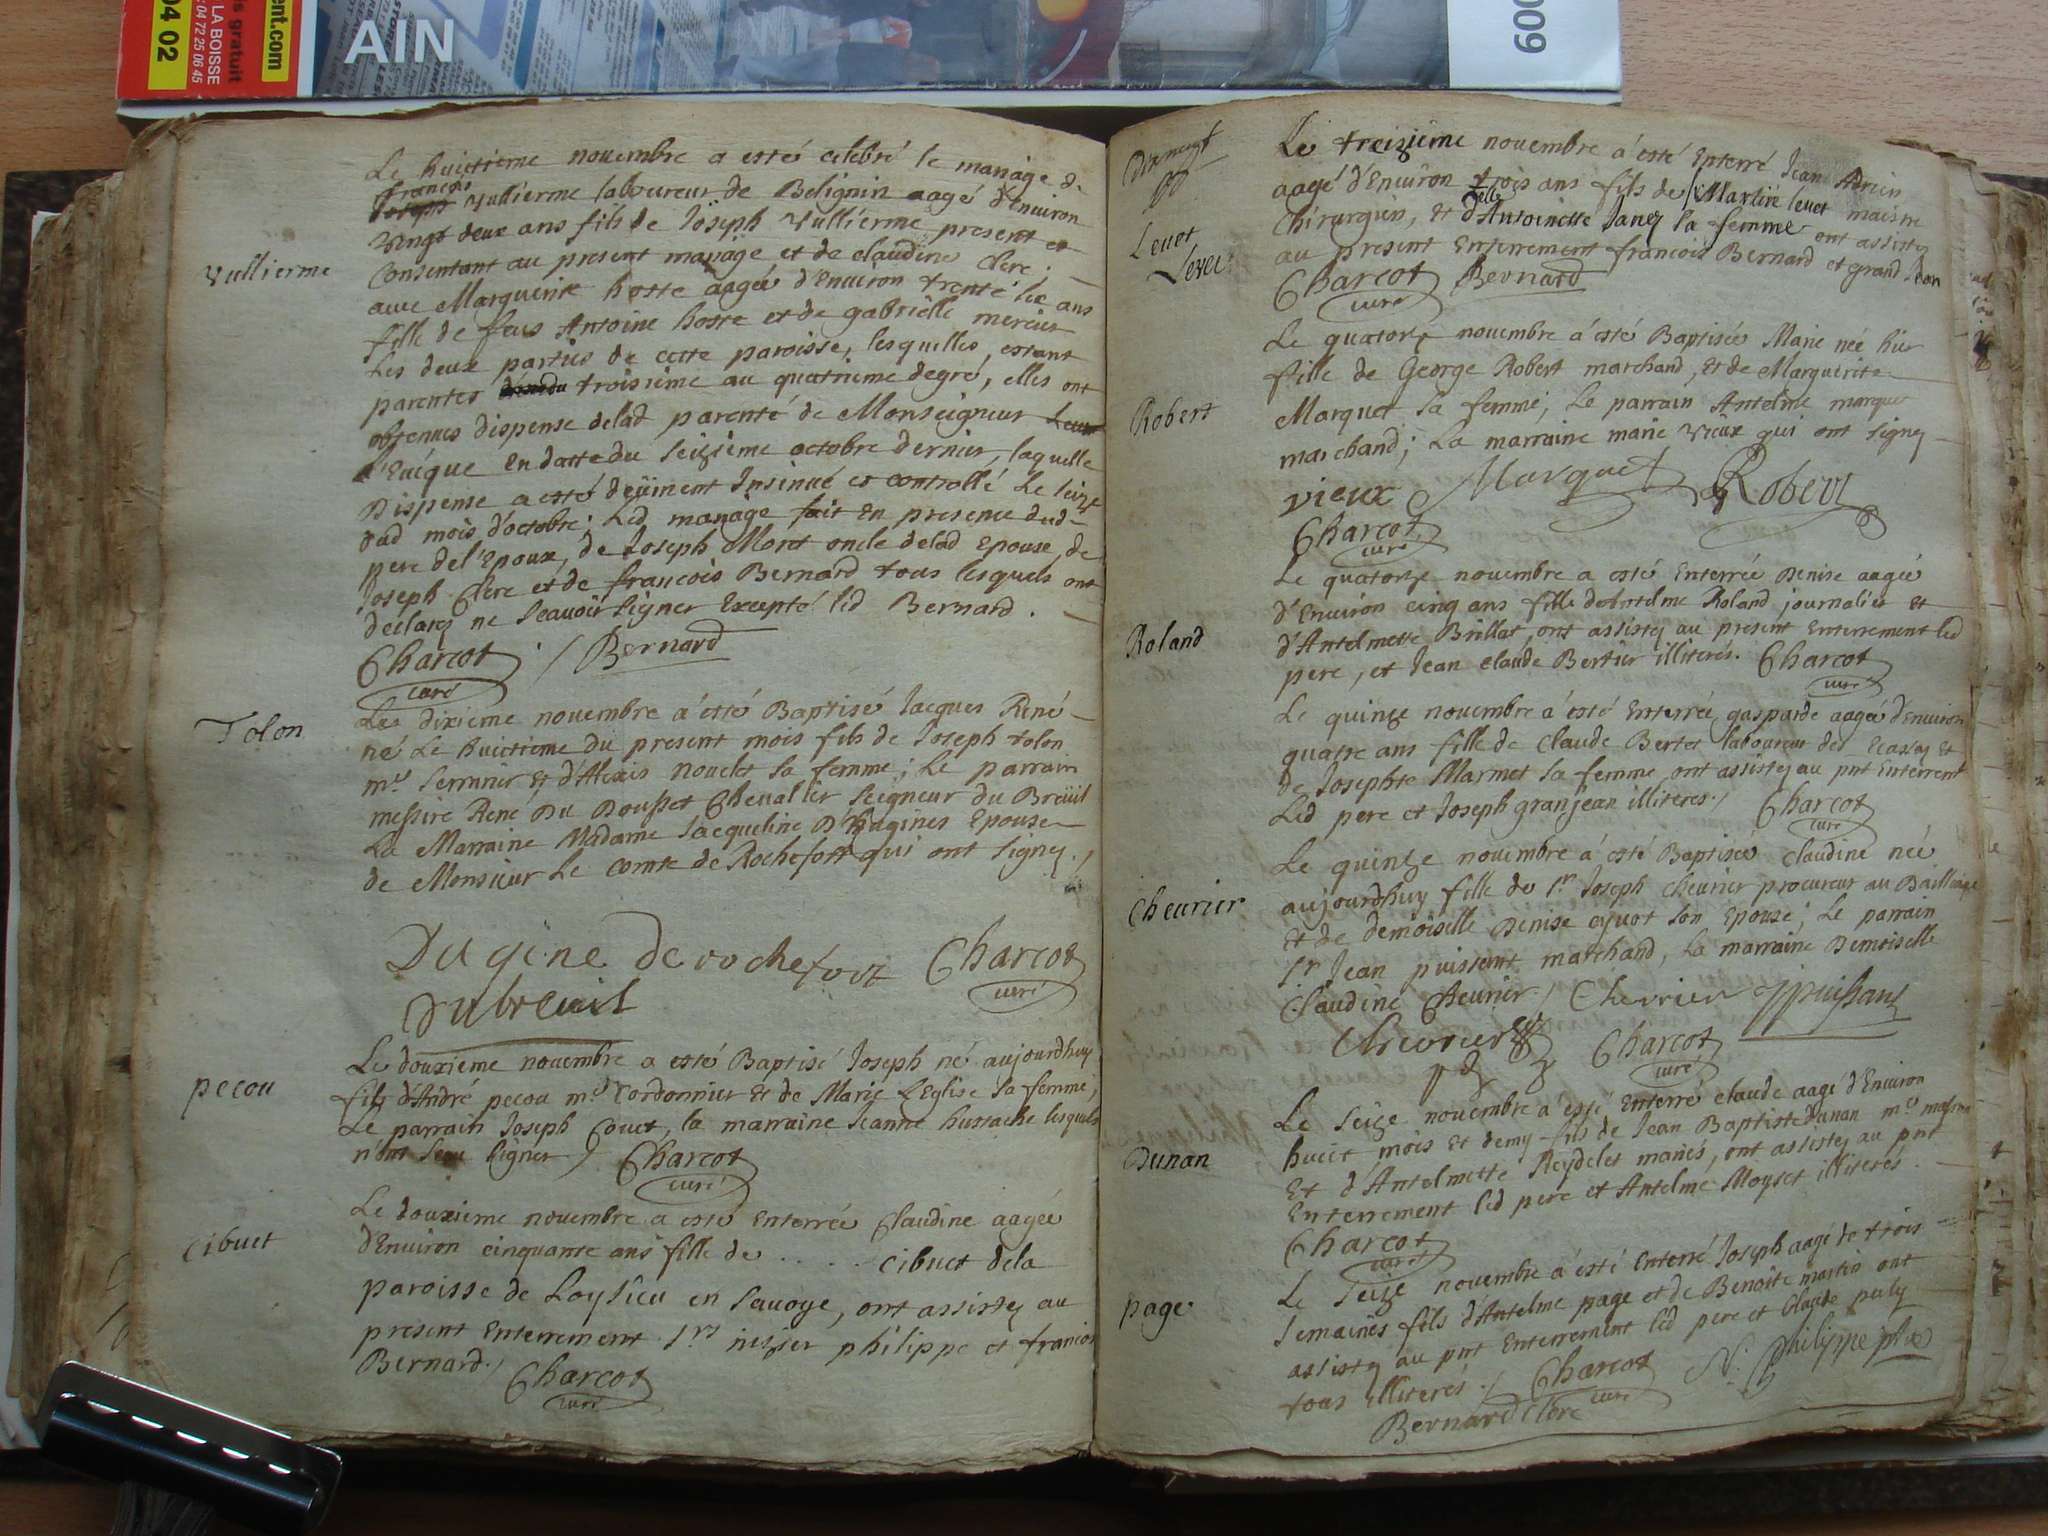 ent.com
is gratuit
LA BOISSE
04 72 25 06 45
04 02
AIN
009
Le huictieme novembre a esté celebré le mariage de
françois
Joseph Vullierme laboureur de Belignin aagé d'Environ
Vingt deux ans fils de Joseph Vullierme present et
Vullierme
Consentant au present mariage et de claudine Clerc;
avec Marguerite hoste aagée d'Environ trente six ans
fille de feus Antoine hoste et de gabrielle mercier
Les deux parties de cette paroisse, lesquelles estant
parentes du troisieme au quatrieme degré, elles ont
obtenues dispense delad parenté de Monseigneur
l'Eveque En datte du seizieme octobre dernier, laquelle
Dispense a esté deüiment Insinué et controllé Le seize
dud mois d'octobre; Led mariage fait En presence dud
pere de l'Epoux, de Joseph Moret oncle delad Epouse, de
Joseph Clerc et de francois Bernard tous lesquels ont
declarez ne Scavoir signer Excepté led Bernard.
Charcot curé / Bernard
Tolon
Le dixieme novembre a esté Baptisé Jacques René
né Le huictieme du present mois fils de Joseph tolon
me Serrurier Et d'Alexis Nouelet sa femme; Le parrain
messire René Du Dousset Chevallier Seigneur du Breüil
La Marraine Madame Jacqueline Dugines Epouse
de Monsieur Le comte de Rochefort qui ont signez /
Dugine de rochefort Charcot curé
dubreuil
Le douxieme novembre a esté Baptisé Joseph né aujourdhuy
pecou
fils d'André pecou me Cordonnier Et de Marie L'Eglise sa femme,
Le parrain Joseph Couet, la marraine Jeanne hustache lesquels
n'ont sceu signer / Charcot curé
Le douxieme novembre a esté Enterrée Claudine aagée
Cibuet
d'Environ cinquante ans fille de . . . . Cibuet dela
paroisse de Loysieu en Savoye, ont assistez au
present Enterrement Srs nisier philippe et francois
Bernard / Charcot curé
Le treizieme novembre a esté Enterré Jean Adrien
aagé d'Environ trois ans fils de Martin levet maistre
Chirurgien, Et d'Antoinette Janez sa femme ont assistez
Levet
Levet
au present Enterrement francois Bernard et grand Jean
Charcot curé Bernard
Le quatorze novembre a esté Baptisée Marie née hier
fille de George Robert marchand, Et de Marguerite
Robert
Marquet sa femme; Le parrain Antelme marquet
marchand; La marraine marie Vieux qui ont signez
vieux Marquet Robert
Charcot curé
Le quatorze novembre a esté Enterrée Denise aagée
d'Environ cinq ans fille dAntelme Roland journalier Et
Roland
d'Antelmette Brillat, ont assistez au present Enterrement led
pere, et Jean Claude Bertier illiterés. Charcot curé
Le quinze novembre a esté Enterrée gasparde aagée d'Environ
quatre ans fille de Claude Bertet laboureur des Ecassaz Et
de Josephte Marmet sa femme ont assistez au pnt Enterrent
Led pere et Joseph granjean illiteres / Charcot curé
Le quinze novembre a esté Baptisée Claudine née
Chevrier
aujourdhuy fille de Sr Joseph Chevrier procureur au Bailliage
Et de demoiselle Denise Cyvot son Epouse; Le parrain
Sr Jean puissant marchand, La marraine Demoiselle
Claudine Chevrier / Chevrier JPuissant
Chevrier Charcot curé
Le Seize novembre a esté Enterré claude aagé d'Environ
huict mois Et demy fils de Jean Baptiste Dunan me masson
Dunan
Et d'Antelmette Reydelet mariés, ont assistez au pnt
Enterrement led pere et Antelme Moyret illiterés
Charcot curé
Le Seize novembre a esté Enterré Joseph aagé de trois
page
semaines fils d'Antelme page et de Benoite martin ont
assistez au pnt Enterrement led pere et Claude puly
tous illiterés / Charcot curé N. philippe ptre
Bernard Clerc